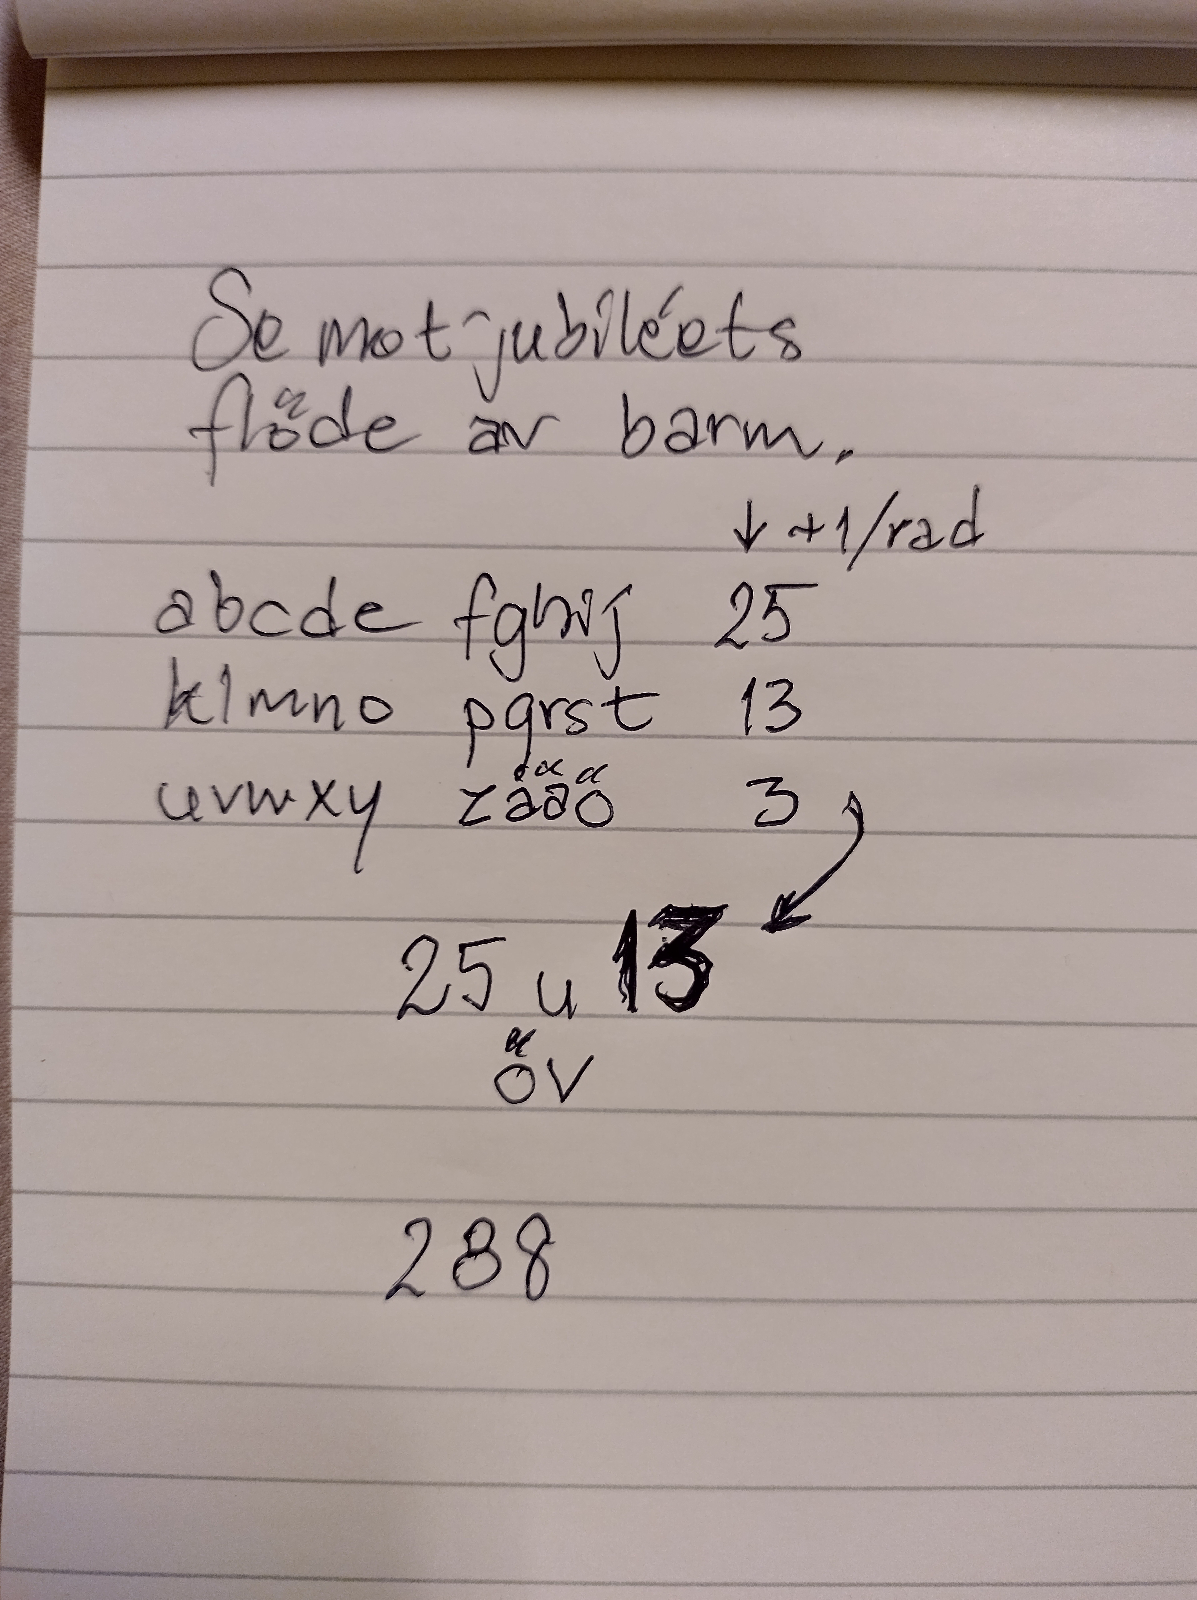 Se mot jubiléets
flöde av barm.
↓ +1/rad
abcde fghij 25
klmno pqrst 13
uvwxy zåäö 3
25 u 13
öv
288